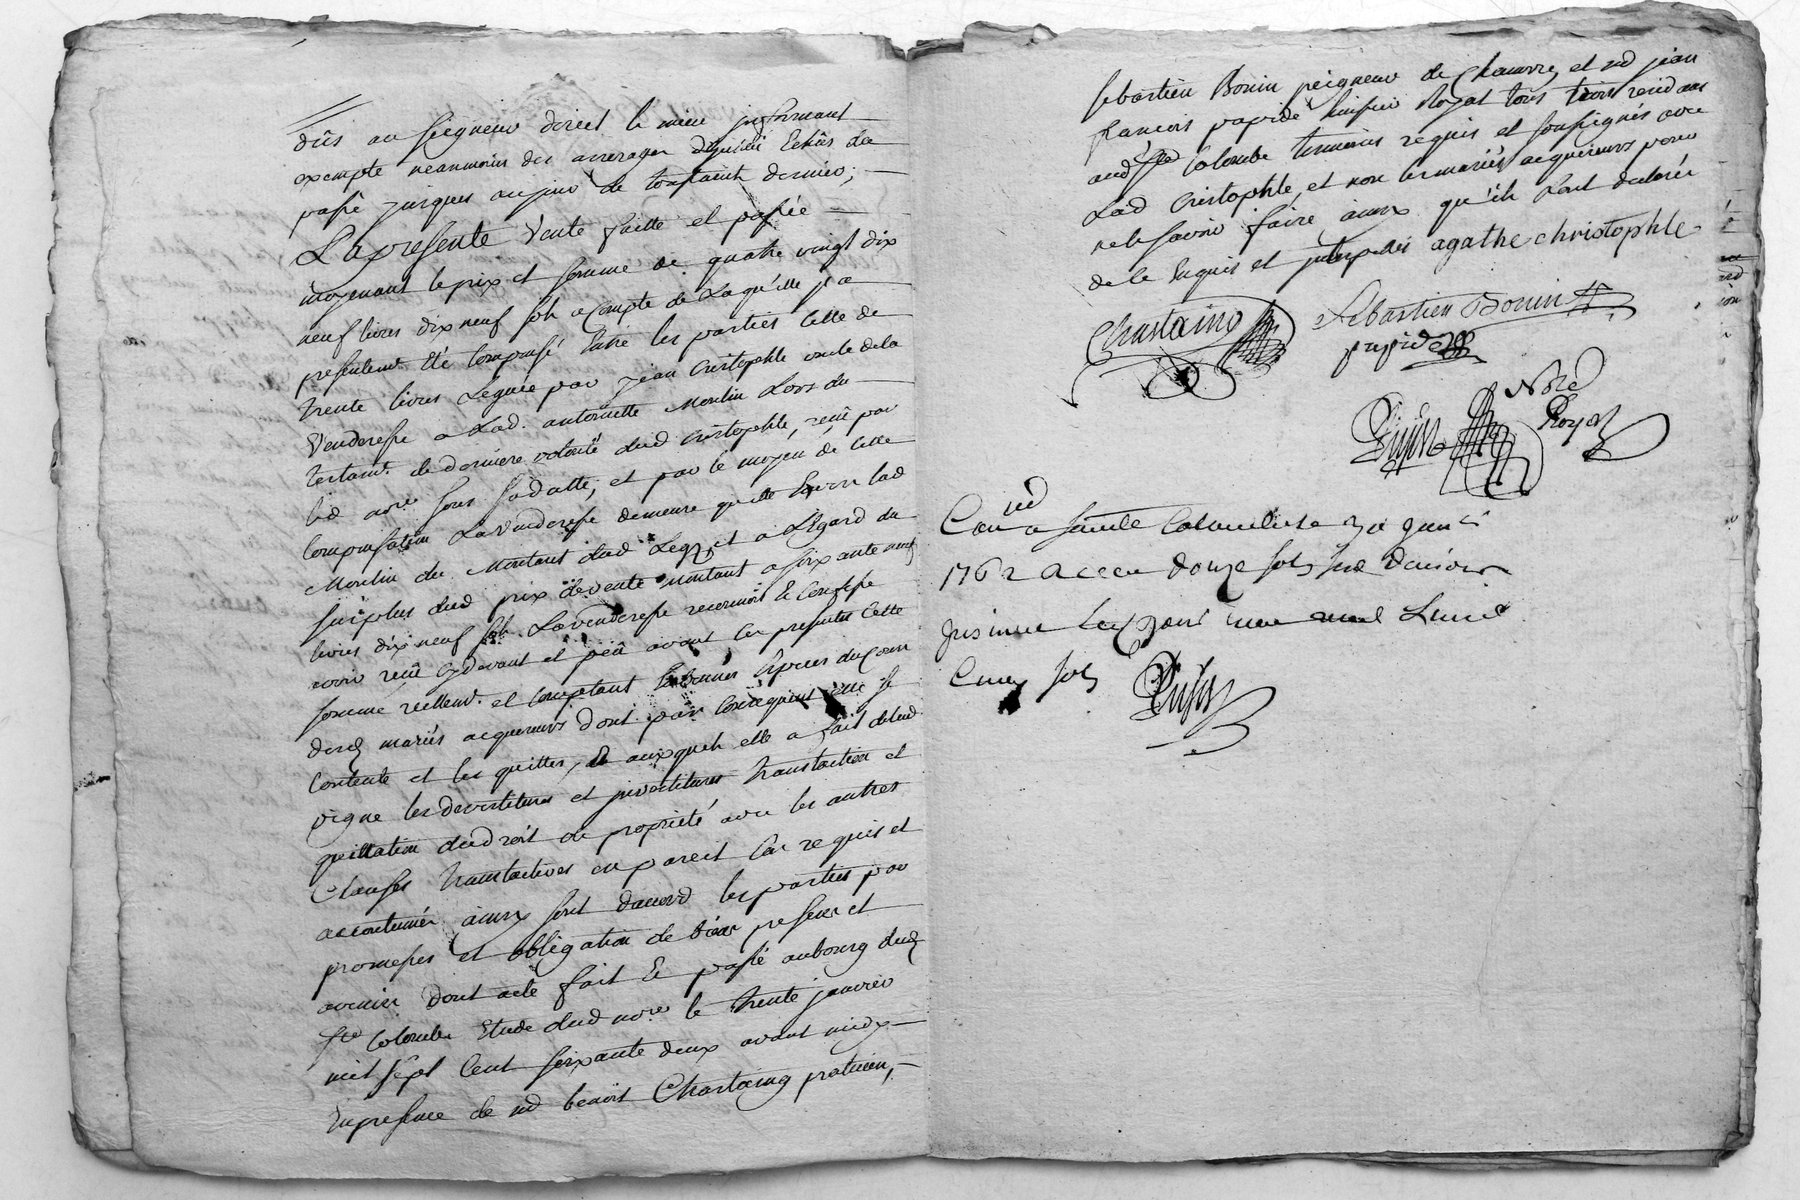 dûs au seigneur direct le mieu jnformant
exempte neanmoins des arrerages d'jceluï Echûs du
passé jusques au jour de toussaint dernier;
La presente Vente faitte et passée
moyenant le prix et somme de quatre vingt dix
neuf livres dix neuf sols a Compte de Laquelle jl a
presentemt. Eté Compensé Entre les parties Celle de
trente livres Leguée par jean Cristophle oncle de la
Venderesse a Lad. antoinette Moulin Lors du
testamt. de derniere volonté dud Cristophle, reçû par
led nore sous sa datte, et par le moyen de Cette
Compensation La Venderesse demeure quitte Envers lad
Moulin du Montant dud Legs, et a L'Egard du
surplus dud prix de vente montant a soixante neuf
livres dix neuf sols La venderesse reconnoit Et Confesse
avoir reçû Cydevant et peu avant les presentes Cette
somme réellemt. et Comptant En bonnes Especes du Cours
desd mariés acquereurs dont par Conséquent elle se
Contente et les quitte, et auxquels elle a fait de lad
vigne les devestitures et jnvestitures translation et
quittation dudroit de propriété avec les autres
Clauses translatives en pareil Cas requis et
accoutumées ainsy sont d'accord les parties par
promesses et obligation de biens presens et
avenir dont acte fait Et passé au bourg dud
ste Colombe Etude dud nore le trente janvier
mil sept Cent soixante deux avant midy
En presence de md benoit Chastaing praticien,
sebastien Bonin peigneur de Chanvre, et md jean
francois papide huissier Royal tous trois residans
aud ste Colombe temoins requis et soussignés avec
Lad Cristophle, et non les mariés acquereurs pour
ne le savoir faire ainsy qu'ils L'ont déclaré
de ce Enquis et jnterpellés agathe christophle
Chastaing
Sebastien Bonin
papide
Nore
Royal
Con led a sainte Colombe le 30 janr
1762 Reçu douze sols six deniers
jnsinué led jour une Livre
Cinq sols